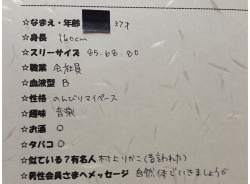 ☆なまえ・年齢 37才
☆身長 160cm
☆スリーサイズ 85.68.80
☆職業 会社員
☆血液型 B
☆性格 のんびりマイペース
☆趣味 音楽
☆お酒 ○
☆タバコ ○
☆似ている?有名人 村上りかこ(言われた)
☆男性会員さまへメッセージ 自然体でいきましょうが